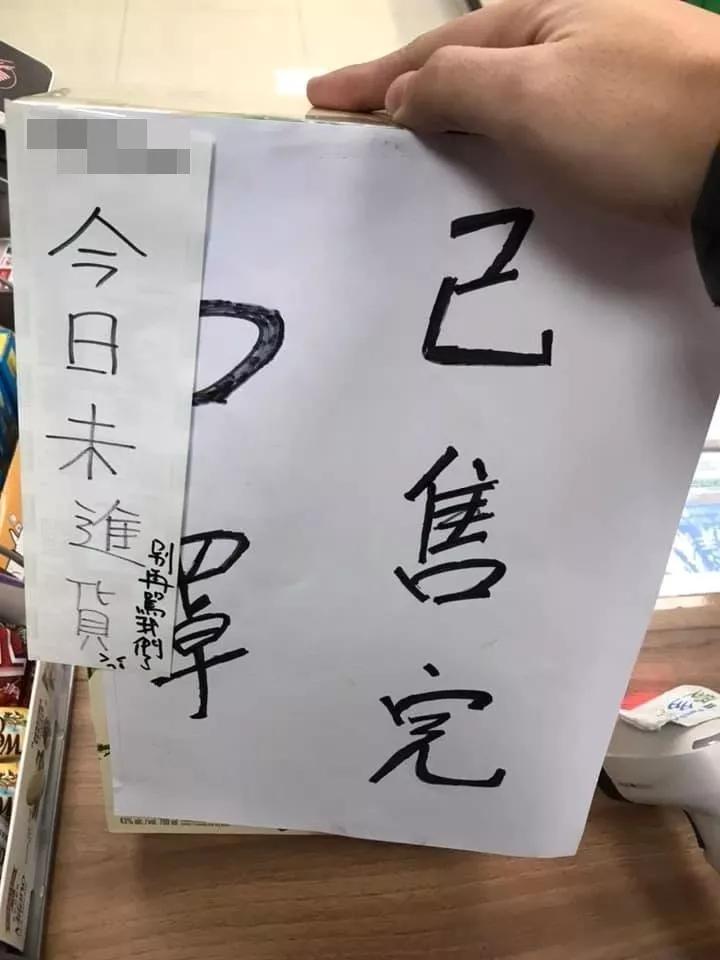 今日未進貨
別再罵我們了
口罩
已售完